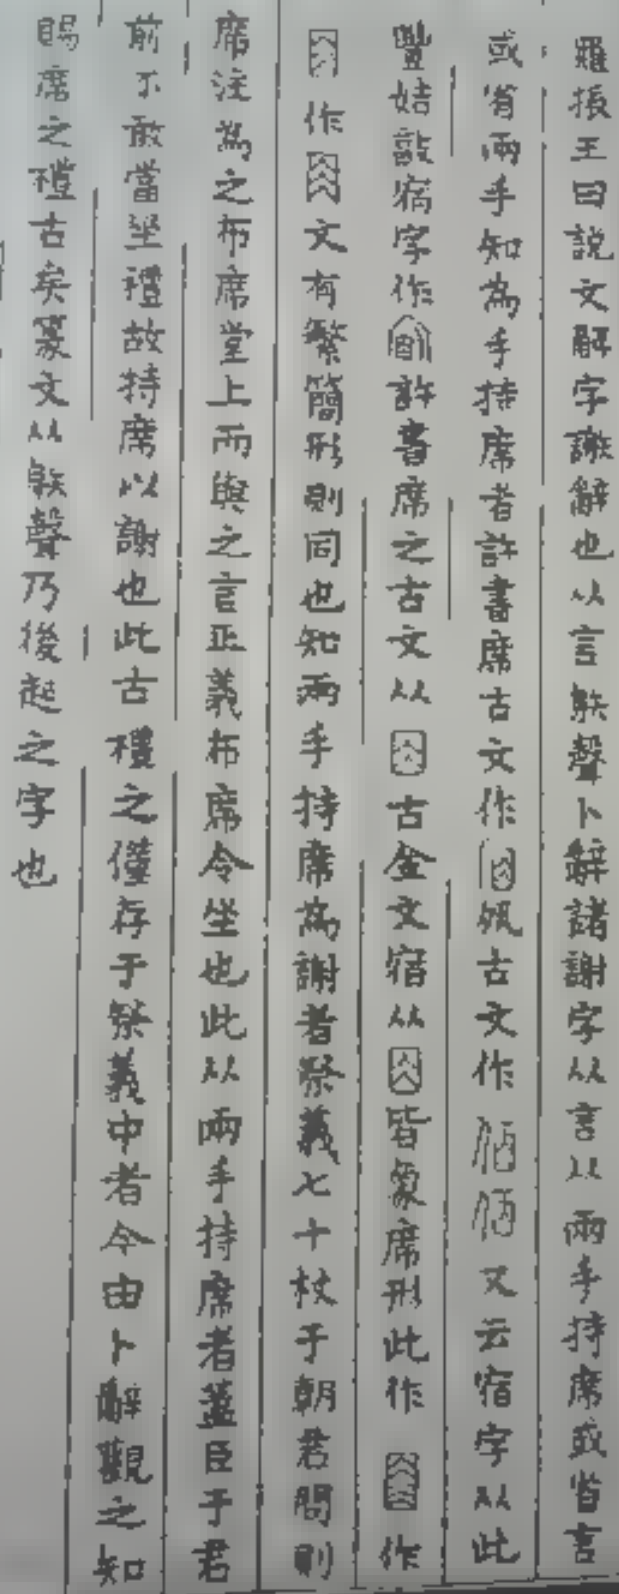 羅振王曰説文解字謝辭也从言䠶聲卜辭諸謝字从言从兩手持席或省言
或省兩手知為手持席者許書席古文作夙古文作又云宿字从此
豐姞敦宿字作許書席之古文从古金文宿从皆象席形此作作
作文有繁簡形則同也知兩手持席為謝者祭義七十杖于朝君問則
席注為之布席堂上而與之言正義布席令坐也此从兩手持席者蓋臣于君
前不敢當坐禮故持席以謝也此古禮之僅存于祭義中者今由卜辭觀之知
賜席之禮古矣篆文从䠶聲乃後起之字也